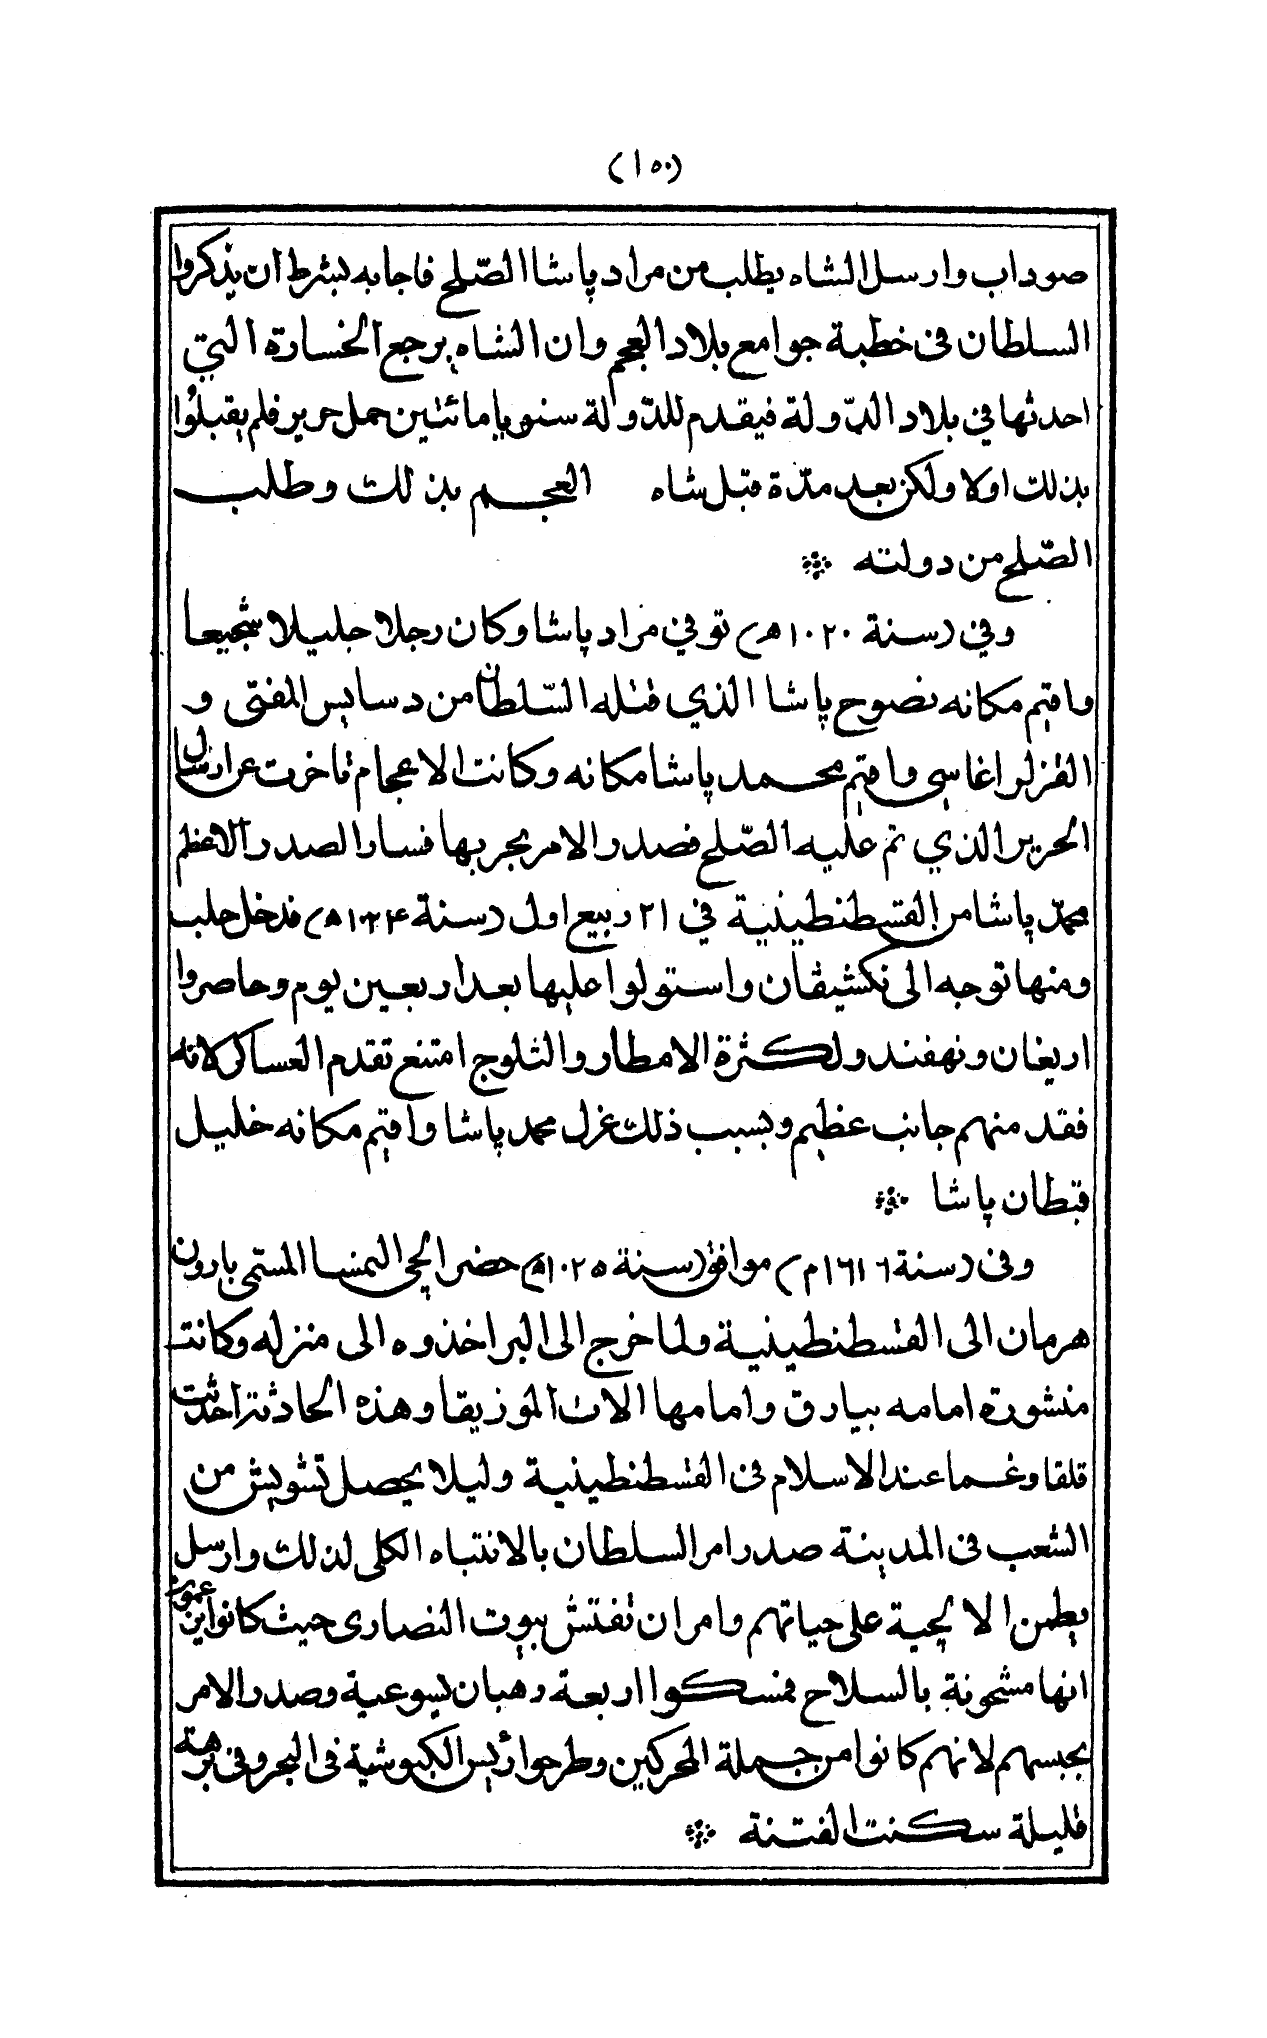 (١٥٠)
صوداب وارسل الشاه يطلب من مراد پاشا الصّلح فاجابه بشرط ان يذكروا
السلطان فى خطبة جوامع بلاد العجم وان الشاه يرجع الخسارة التي
احدثها في بلاد الدّولة فيقدم للدّولة سنويا مائتين حمل حرير فلم يقبلوا
بذلك اولا ولكن بعد مدّة قبل شاه العجم بذلك وطلب
الصّلح من دولته
وفي (سنة ١٠٢٠ھ) توفي مراد پاشا وكان رجلا جليلا شجيعا
واقيم مكانه نصوح پاشا الذي قتله السّلطان من دسايس المفتى و
القزلراغاسي واقيم محمد پاشا مكانه وكانت الاعجام تاخرت عن ارسال
الحرير الذي تم عليه الصّلح فصدر الامر بحربها فسار الصدر الاعظم
محمّد پاشا من القسطنطينية في ٢١ ربيع اول (سنة ١٠٢۴ھ) فدخل حلب
ومنها توجه الى نكشيڤان واستولوا عليها بعد اربعين يوم وحاصروا
اريغان ونهفند ولكثرة الامطار والثلوج امتنع تقدم العساكر لانه
فقد منهم جانب عظيم وبسبب ذلك عزل محمد پاشا واقيم مكانه خليل
قبطان پاشا
وفى (سنة ١٦١٦م) موافق (سنة ١٠٢٥ھ) حضر الچى النمسا المسمى بارون
هرمان الى القسطنطينية ولما خرج الى البر اخذوه الى منزله وكانت
منشورة امامه بيارق وامامها الات الموزيقا وهذه الحادثة احدثت
قلقا وغما عند الاسلام فى القسطنطينية وليلا يحصل تشويش من
الشعب فى المدينة صدر امر السلطان بالانتباه الكلى لذلك وارسل
يطمن الالچية على حياتهم وامر ان تفتش بيوت النصارى حيث كانوا يزعمون
انها مشحونة بالسلاح فمسكوا اربعة رهبان يسوعية وصدر الامر
بحبسهم لانهم كانوا من جملة المحركين وطرحوا رئيس الكبوشية فى البحر وفى برهة
قليلة سكنت الفتنة